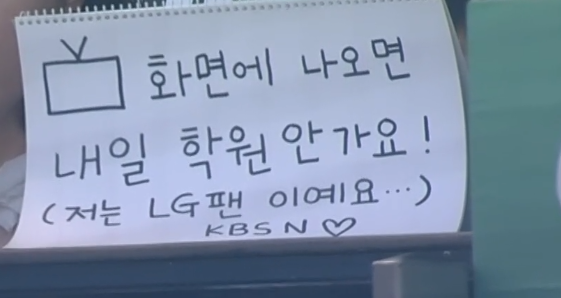 화면에 나오면
내일 학원 안가요!
(저는 LG팬 이예요...)
KBS N ♡